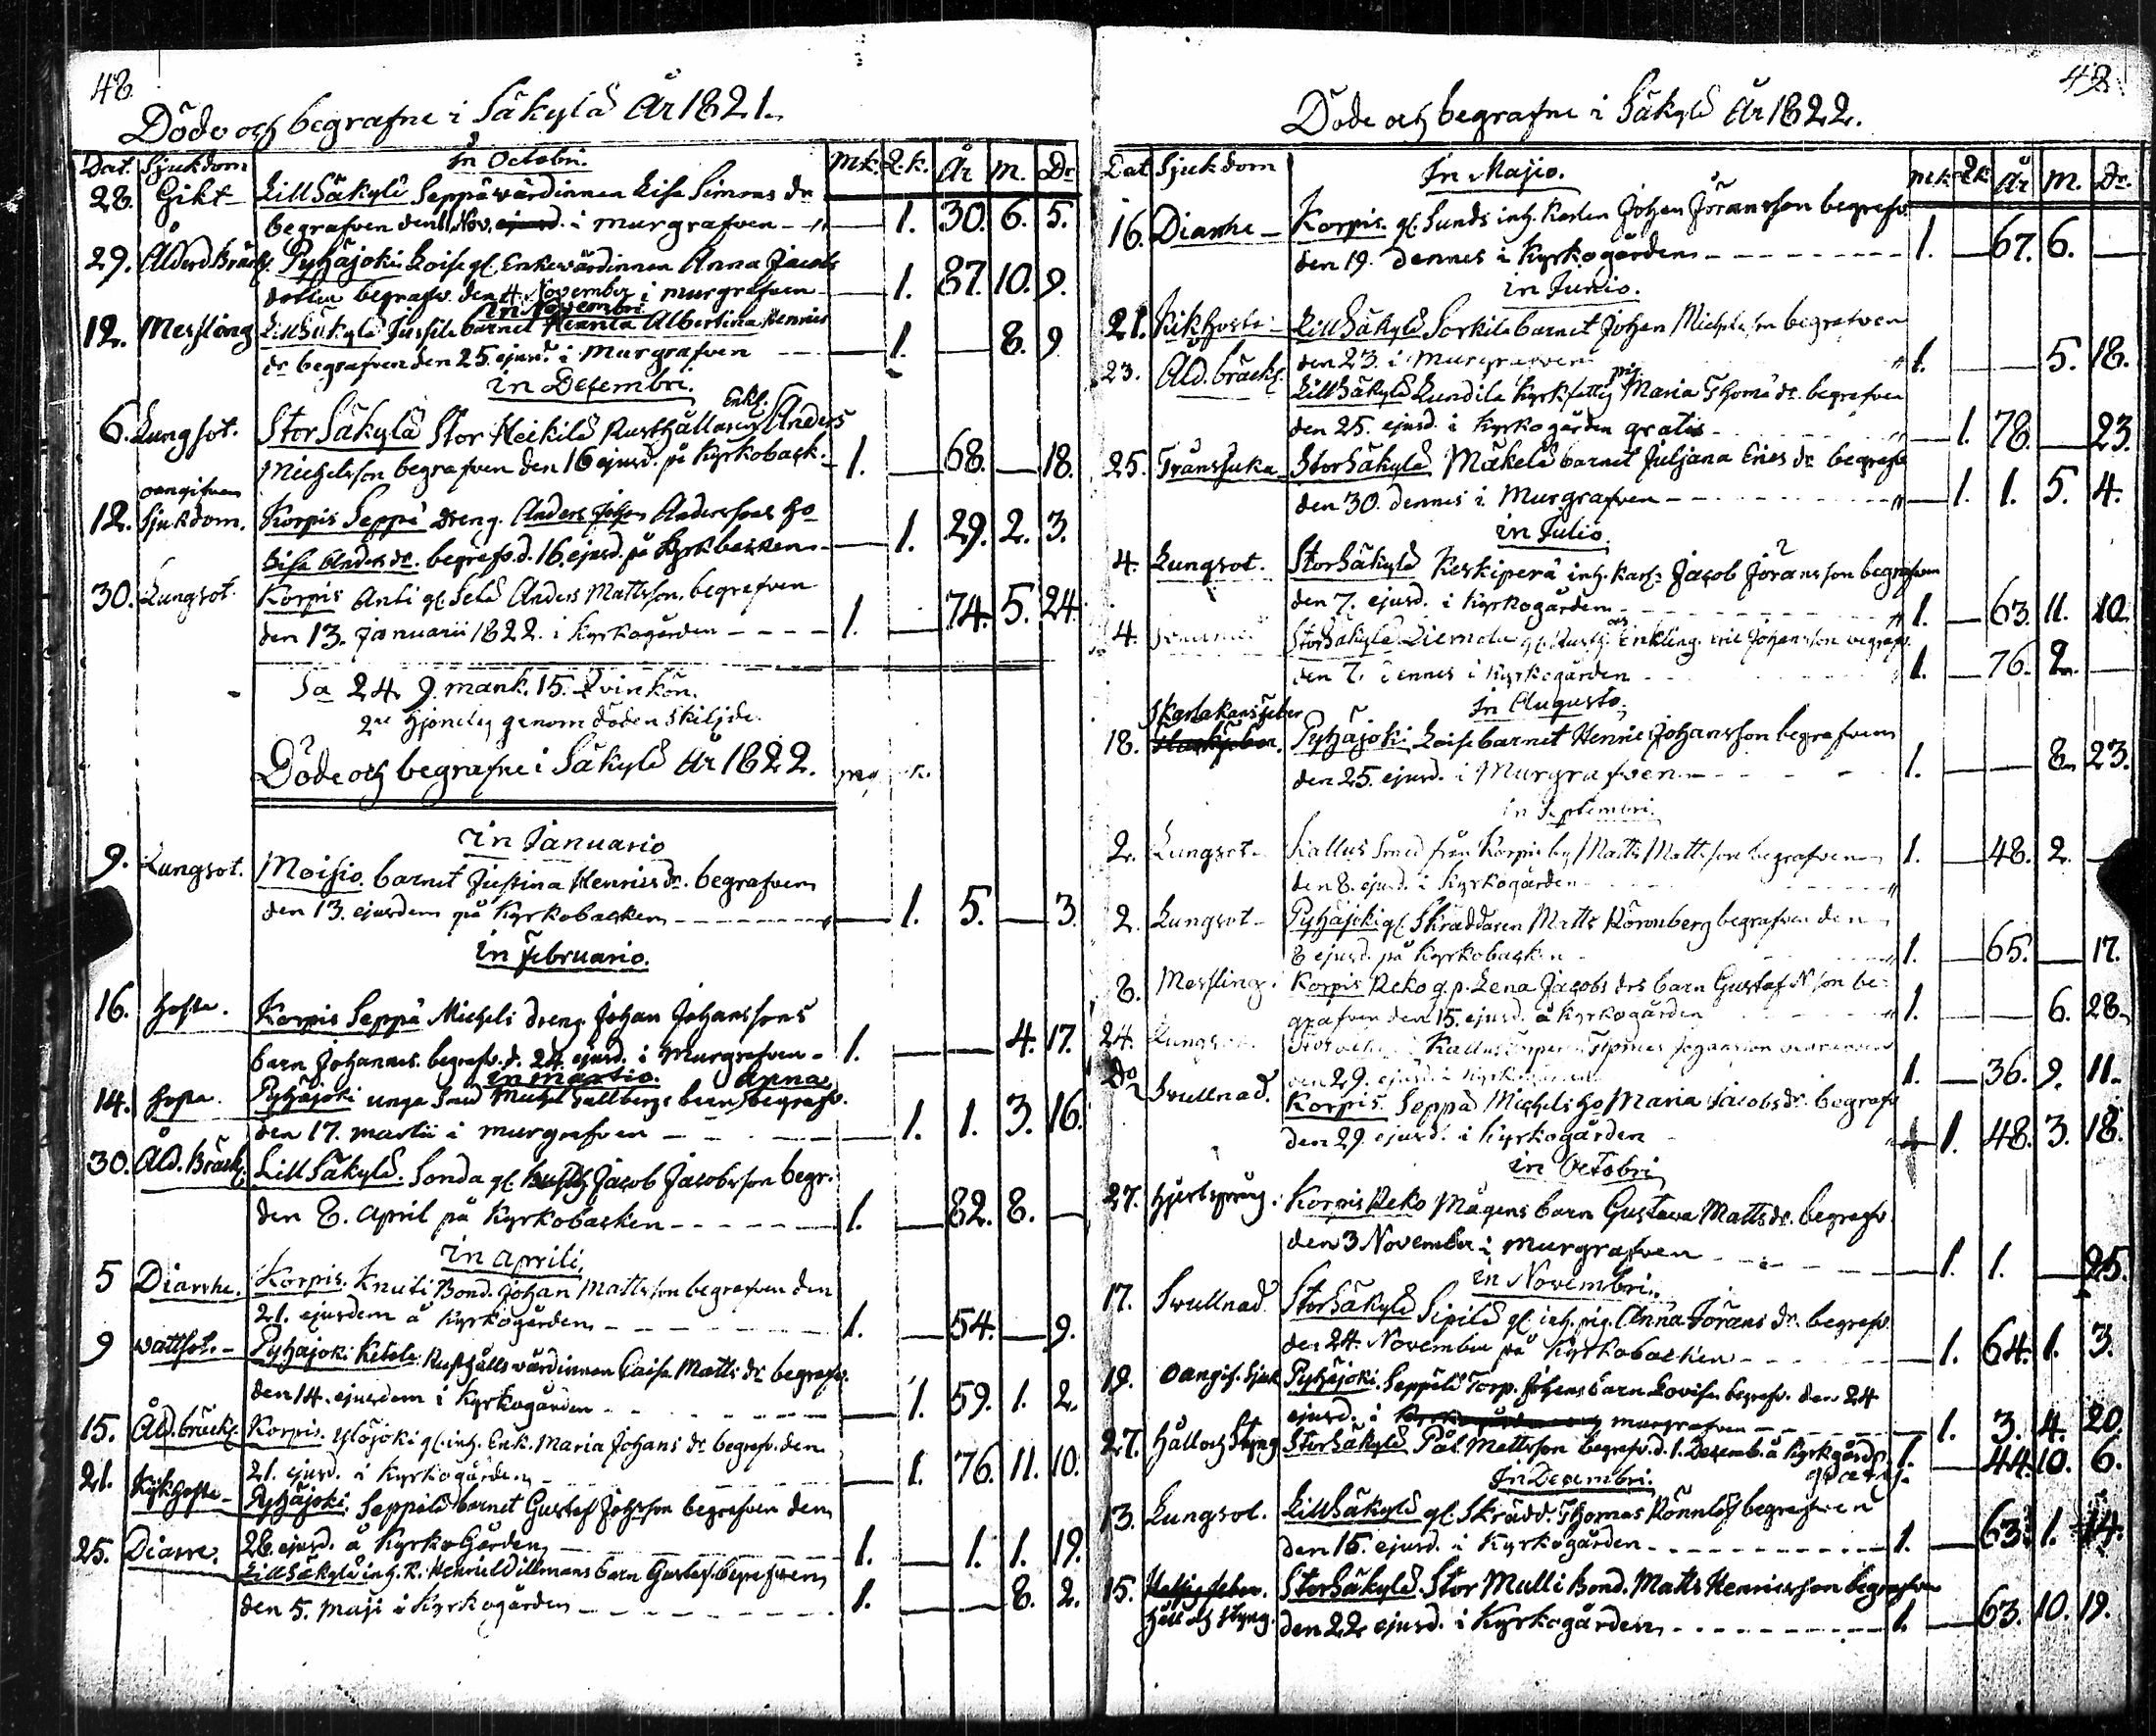 48.
Döde och begrafne i Säkylä År 1821.
Dat. Sjukdom In Octobri. Mk. Q.k. År M. Dr
28. Gikt Lill Säkylä Seppä wärdinnan Lisa Simons dr
begrafven den 1 Nov. ejusd. i murgrafven 1. 30. 6. 5.
29. Ålderd Bräckl. Pyhäjoki Loise gl. Enkewärdinnan Anna Jacobs
dotter begrafv. den 4. November i murgrafven 1. 87. 10. 9.
in Novembri
12. Messling Lill Säkylä Jussila barnet Albertina Henrics
dr begrafven den 25. ejusd. i Murgrafven 1. 8. 9
in Desembri.
6. Lungsot. Stor Säkylä Stor Heikilä Rusthållaren Enkl. Anders
Michelsson begrafven den 16 ejusd. på Kyrkoback. 1. 68. 18.
12. oangifven Sjukdom. Korpis Seppä Dreng. Anders Johan Anderssons ho
Lisa Anders dr. begrafv. d. 16. ejusd. på Kyrkbacken 1. 29. 2. 3.
30. Lungsot. Korpis Anti gl. Anders Mattsson, begrafven
den 13. Januarii 1822. i Kyrkogården 1. 74. 5. 24.
Sa 24. 9. mank. 15. Qvinkön.
2ne Hjonelag genom döden skiljde.
Döde och begrafne i Säkylä År 1822.
in Januario
9. Lungsot. Moisio. barnet Justina Henrics dr. begrafven
den 13. ejusdem på Kyrkobacken 1. 5. 3.
in Februario.
16. Hosta. Korpis Seppä Michels dreng. Johan Johanssons
barn Johannes. begrafv. d. 24. ejusd. i Murgrafven 1. 4. 17.
in Martio.
14. Hosta. Pyhäjoki unga Smed Michel barn Anna begrafv.
den 17. Martii i murgrafven 1. 1. 3. 16.
30. Åld. Bräckl. Lill Säkylä. Sonda gl. Jacob Jacobsson begr.
den 8. April på Kyrkobacken 1. 82. 8.
in Aprili.
5 Diarrhe. Korpis. Knuti Bond. Johan Mattsson begrafven den
21. ejusdem å Kyrkogården 1. 54. 9.
9 Wattsot. Pyhäjoki Rusthålls wärdinnan Caisa Matts dr begrafv.
den 14. ejusdem i Kyrkogården 1. 59. 1. 2.
15. Åld. bräckl. Korpis. Ylöjoki gl. inh. Enk. Maria Johans dr begrafv. den
21. ejusd. i Kyrkogården 1. 76. 11. 10.
21. Kykhosta Pyhäjoki. Seppälä barnet Gustaf Johsson begrafven den
28. ejusd. å KyrkoGården 1. 1. 1. 19.
25. Diarre. Lill Säkylä inh. K. Henric Dillmans barn Gustaf. begrafven
den 5. Maji i Kyrkogården 1. 8. 2.
49.
Döde och begrafne i Säkylä År 1822.
Dat Sjukdom In Majio. Mk Qk År M. Dr.
16. Diarrhe Korpis. gl. Sunds inh. Karlen Johan Jöransson begrafv.
den 19. Dennes i Kyrkogården 1. 67. 6.
in Junio.
21. Kikhosta Lill Säkylä Sorkila barnet Johan Michelsson begrafven
den 23. i murgrafven 1. 5. 18.
23. Åld. bräckl. Lill Säkylä Lundila Kyrk fattig pig. Maria Thomæ dr. begrafven
den 25. ejusd. i Kyrkogården gratis 1. 78. 23.
25. Trånsjuka Stor Säkylä Mäkelä barnet Juljana Erics dr begrafv
den 30. dennes i Murgrafven 1. 1. 5. 4.
in Julio.
4. Lungsot. Stor Säkylä Keskiperä inh. Karl. Jacob Jöransson begrafven
den 7. ejusd. i Kyrkogården 1. 63. 11. 10.
4. Stor Säkylä Enkling Eric Johansson begrafv.
den 7. dennes i Kyrkogården 1. 76. 2.
in Augusto.
18. Skarlakansfeber Pyhäjoki Loise barnet Henric Johansson begrafven
den 25. ejusd. i Murgrafven 1. 8. 23.
in Septembri.
2. Lungsot Kallus Smed från Korpis by Matts Mattsson begrafven
den 8. ejusd. i Kyrkogården 1. 48. 2.
2. Lungsot Pyhäjoki gl. Skräddaren Matts Rönnberg begrafven den
8 ejusd. på Kyrkobacken 1. 65. 17.
8. Messling. Korpis Reko q. p. Lena Jacobs drs barn Gustaf N son be-
grafven den 15. ejusd. å Kyrkogården 1. 6. 28.
24. Lungsot Kallus Thomas Johansson
den 29. ejusd. i Kyrkogården 1. 36. 9. 11.
Do Svullnad. Korpis. Seppä Michels ho Maria Jacobs dr. begrafv
den 29. ejusd. i Kyrkogården 1. 48. 3. 18.
in Octobri
27. Hjertsprång. Korpis Reko Mågens barn Gustava Matts dr. begrafv.
den 3 November i murgrafven 1. 1. 25.
in Novembri.
17. Svullnad. Stor Säkylä Sipilä gl. inh. pig. Anna Jörans dr. begrafv.
den 24. November på Kyrkobacken 1. 64. 1. 3.
19. Oangif. Sjuk Pyhäjoki. Seppälä Torp. Johans barn Lovisa begrafv. den 24
ejusd. i murgrafven 1. 3. 4. 20.
27. Håll och Styng Stor Säkylä Pål Mattsson begrafv. d. 1. Desemb. å Kyrkogård 1. 44. 10. 6.
gratis.
In Desembri.
13. Lungsot. Lill Säkylä gl. Skrädd. Thomas Rönnlöf begrafven
den 15. ejusd. i Kyrkogården 1. 63. 1. 14.
15. Hetsig feber. Stor Säkylä. Stor Mulli Bond. Matts Henricsson begrafven
Håll och Styng. den 22 ejusd. i Kyrkogården 1. 63. 10. 19.